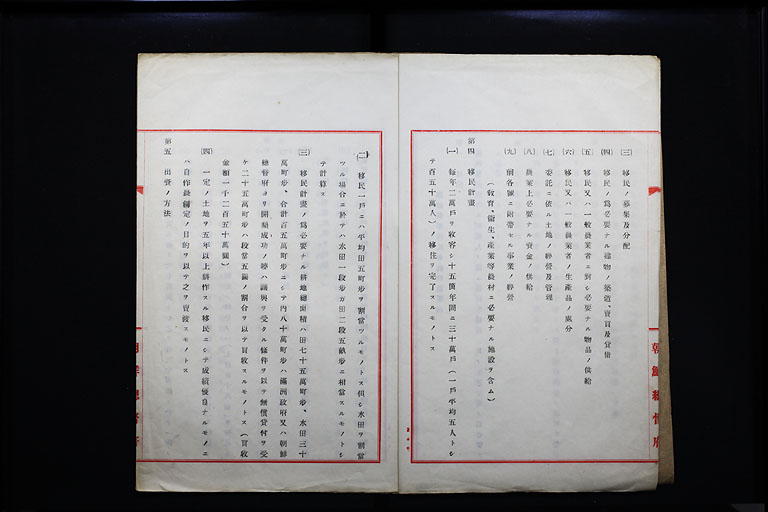 (三) 移民ノ募集及分配
(四) 移民ノ為必要ナル建物ノ築造、賣買及賃借
(五) 移民又ハ一般農業者ニ對シ必要ナル物品ノ供給
(六) 移民又ハ一般農業者ノ生産品ノ處分
(七) 委託ニ依ル土地ノ經營及管理
(八) 農業上必要ナル資金ノ供給
(九) 前各號ニ附帶セル事業ノ經營
(敎育、衞生、產業等農村ニ必要ナル施設ヲ含ム)
第四 移民計畫
(一) 每年二萬戶ヲ收容シ十五箇年間ニ三十萬戶(一戶平均五人トシ
テ百五十萬人)ノ移住ヲ完了スルモノトス
朝鮮總督府
(二) 移民一戶ニハ平均田五町步ヲ割當ツルモノトス但シ水田ヲ割當
ツル場合ニ於テハ水田一段步ガ田二段五畝步ニ相當スルモノトシ
テ計算ス
(三) 移民計畫ノ為必要ナル耕地總面積ハ田七十五萬町步、水田三十
萬町步、合計百五萬町步ニシテ內八十萬町步ハ滿洲政府又ハ朝鮮
總督府ヨリ開墾成功ノ時ハ讓與ヲ受クル條件ヲ以テ無償貸付ヲ受
ケ二十五萬町步ハ段當五圓ノ割合ヲ以テ買收スルモノトス(買收
金額一千二百五十萬圓)
(四) 一定ノ土地ヲ五年以上耕作スル移民ニシテ成績優良ナルモノニ
ハ自作農創定ノ目的ヲ以テ之ヲ賣渡スモノトス
第五 出資ノ方法